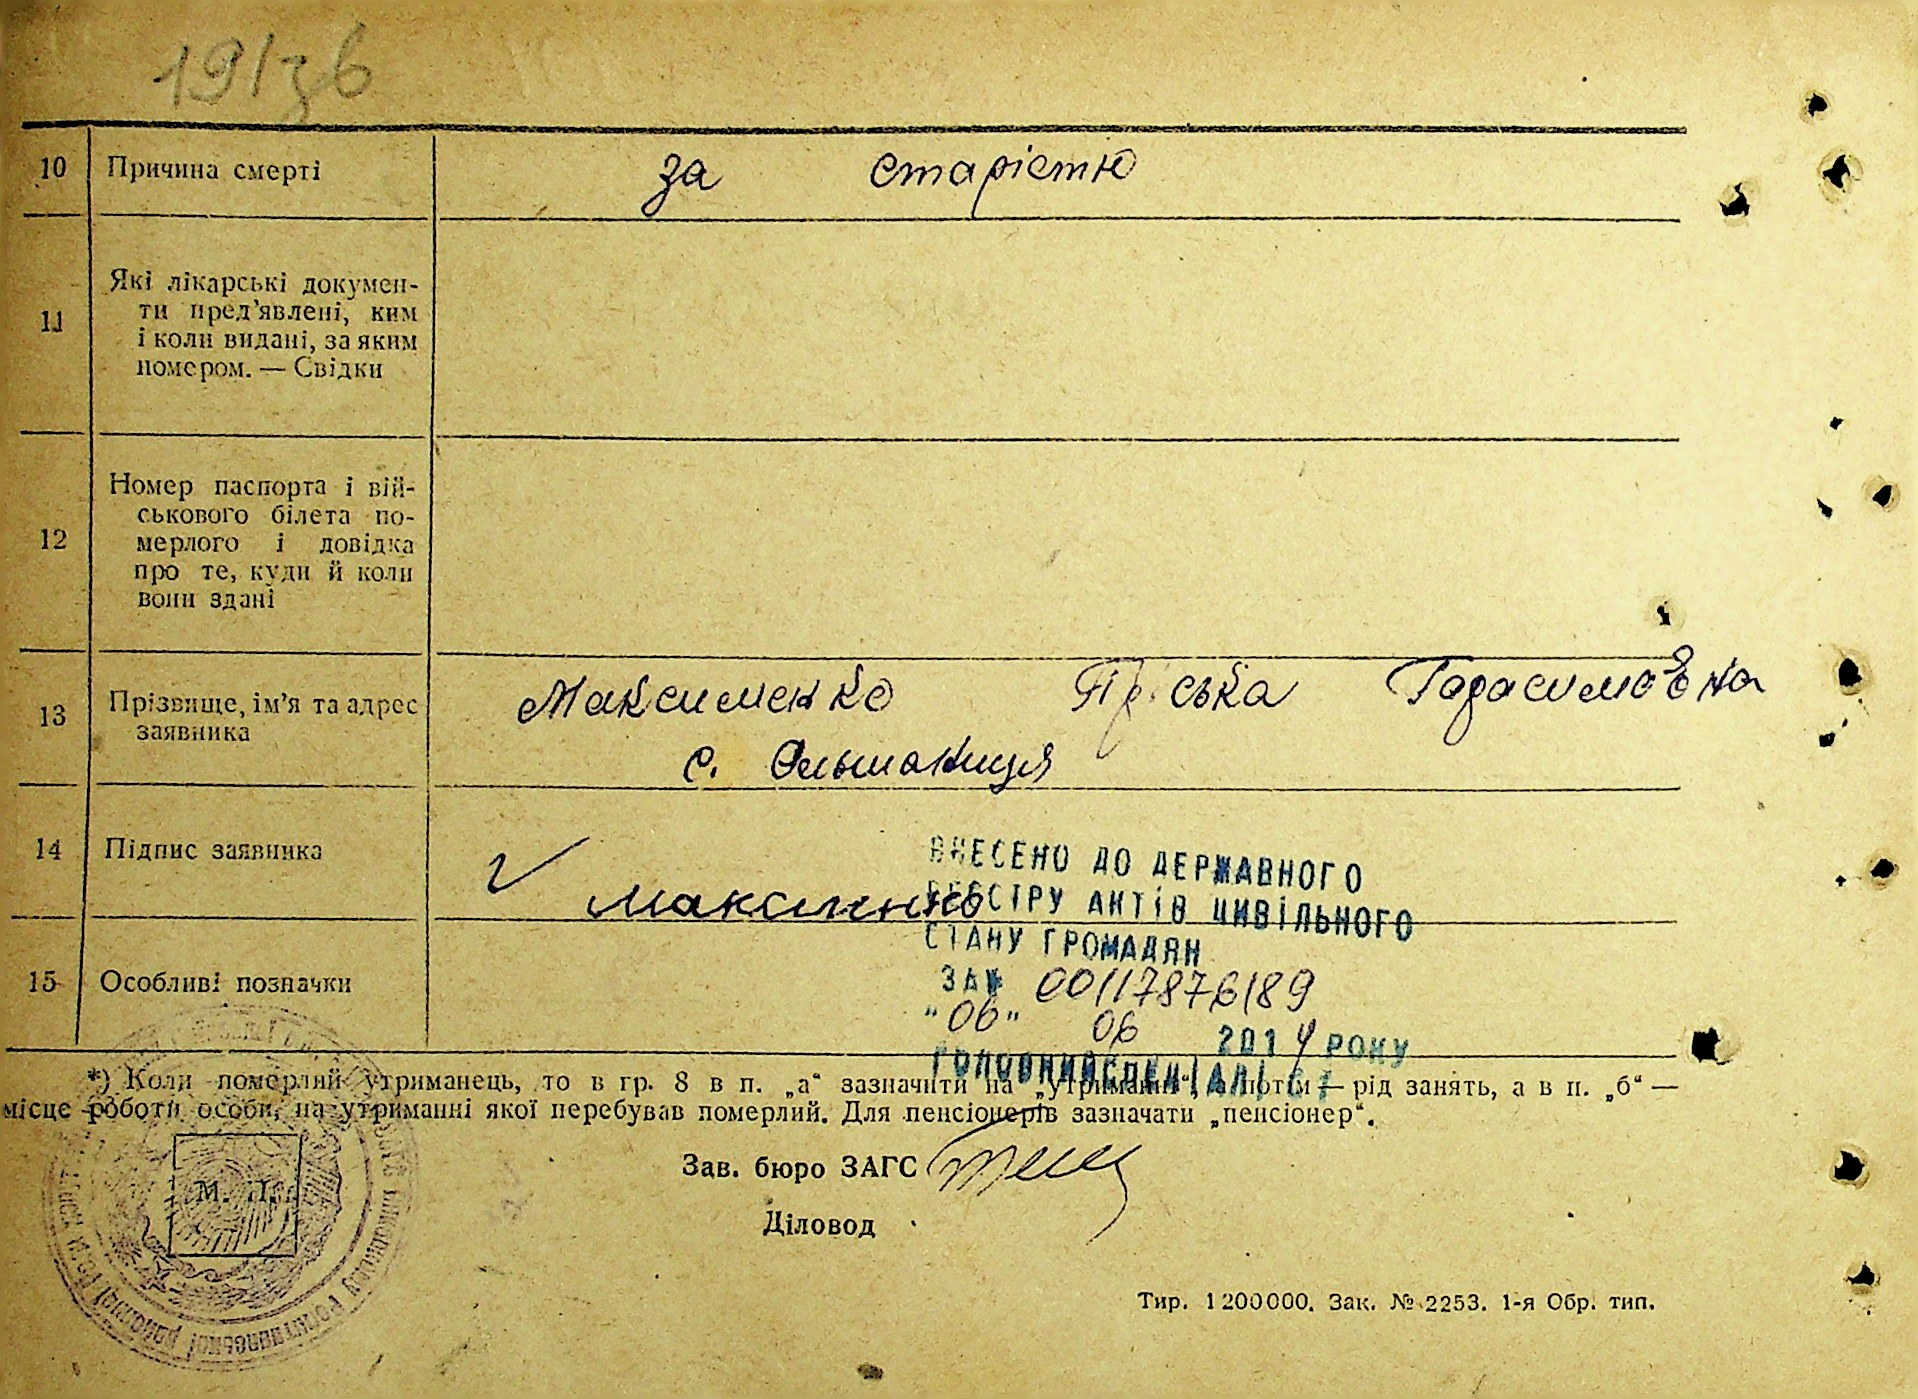 19/зв
10 Причина смерті за старістю
11 Які лікарські докумен-
ти пред’явлені, ким
і коли видані, за яким
номером. — Свідки
12 Номер паспорта і вій-
ськового білета по-
мерлого і довідка
про те, куди й коли
вони здані
13 Прізвище, ім’я та адрес
заявника
Максименко Пріська Гарасимовна
с. Ольшаниця
14 Підпис заявника
Максименко
15 Особливі позначки
ВНЕСЕНО ДО ДЕРЖАВНОГО
РЕЄСТРУ АКТІВ ЦИВІЛЬНОГО
СТАНУ ГРОМАДЯН
ЗА № 00117876189
"06" 06 2014 РОКУ
ГОЛОВНИЙ СПЕЦІАЛІСТ
*) Коли померлий утриманець, то в гр. 8 в п. „а“ зазначити на „утриманні“, а потім — рід занять, а в п. „б“ —
місце роботи особи, на утриманні якої перебував померлий. Для пенсіонерів зазначати „пенсіонер“.
М. П.
Зав. бюро ЗАГС
Діловод
Тир. 1200000. Зак. № 2253. 1-я Обр. тип.